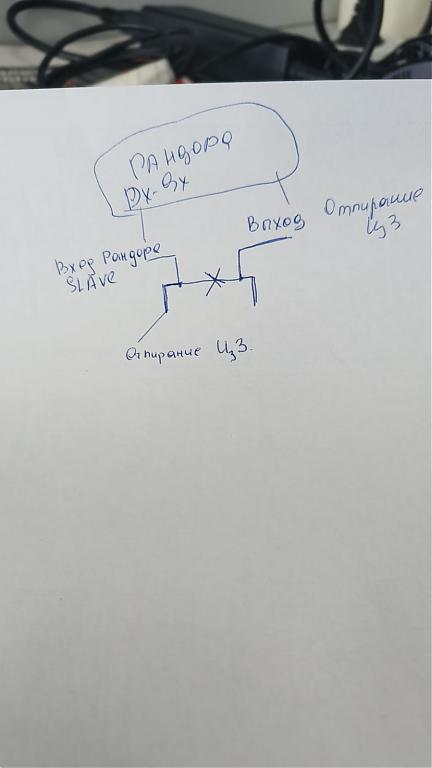 РАНДОРА
DX-9x
Вход Рандора
SLAVE
Выход
Отпирание
ЦЗ
Отпирание ЦЗ.